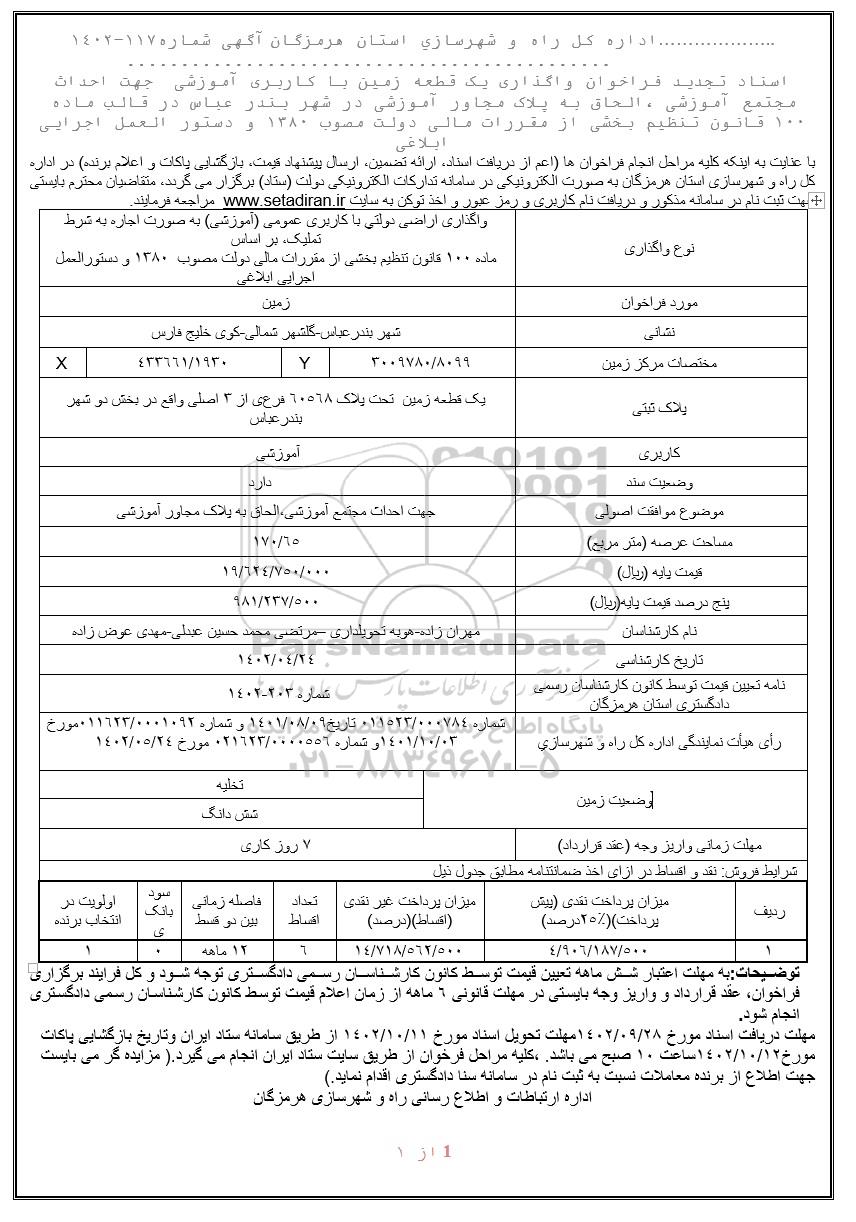 ...................اداره کل راه و شهرسازي استان هرمزگان آگهی شماره ۱۱۷-۱۴۰۲
...............................................
اسناد تجدید فراخوان واگذاری یک قطعه زمین با کاربری آموزشی جهت احداث
مجتمع آموزشی ،الحاق به پلاک مجاور آموزشی در شهر بندر عباس در قالب ماده
۱۰۰ قانون تنظیم بخشی از مقررات مالی دولت مصوب ۱۳۸۰ و دستور العمل اجرایی
ابلاغی
با عنایت به اینکه کلیه مراحل انجام فراخوان ها (اعم از دریافت اسناد، ارائه تضمین، ارسال پیشنهاد قیمت، بازگشایی پاکات و اعلام برنده) در اداره
کل راه و شهرسازی استان هرمزگان به صورت الکترونیکی در سامانه تدارکات الکترونیکی دولت (ستاد) برگزار می گردد، متقاضیان محترم بایستی
جهت ثبت نام در سامانه مذکور و دریافت نام کاربری و رمز عبور و اخذ توکن به سایت www.setadiran.ir مراجعه فرمایند.
نوع واگذاری
واگذاری اراضی دولتي با کاربری عمومی (آموزشی) به صورت اجاره به شرط
تملیک، بر اساس
ماده ۱۰۰ قانون تنظیم بخشی از مقررات مالی دولت مصوب ۱۳۸۰ و دستورالعمل
اجرایی ابلاغی
مورد فراخوان زمین
نشانی شهر بندرعباس-گلشهر شمالی-کوی خلیج فارس
مختصات مرکز زمین ۳۰۰۹۷۸۰/۸۰۹۹ Y ۴۳۳۶۶۱/۱۹۳۰ X
پلاک ثبتی
یک قطعه زمین تحت پلاک ۶۰۵۶۸ فرعی از ۳ اصلی واقع در بخش دو شهر
بندرعباس
کاربری آموزشی
وضعیت سند دارد
موضوع موافقت اصولی جهت احداث مجتمع آموزشی،الحاق به پلاک مجاور آموزشی
مساحت عرصه (متر مربع) ۱۷۰/۶۵
قیمت پایه (ریال) ۱۹/۶۲۴/۷۵۰/۰۰۰
پنج درصد قیمت پایه(ریال) ۹۸۱/۲۳۷/۵۰۰
نام کارشناسان مهران زاده-هویه تحویلداری –مرتضی محمد حسین عبدلی-مهدی عوض زاده
تاریخ کارشناسی ۱۴۰۲/۰۴/۲۴
نامه تعیین قیمت توسط کانون کارشناسان رسمی
دادگستری استان هرمزگان
شماره ۲۰۳-۱۴۰۲
رأی هیأت نمایندگی اداره کل راه و شهرسازي
شماره ۰۱۱۵۲۳/۰۰۰۷۸۴ تاریخ۱۴۰۱/۰۸/۰۹ و شماره ۰۱۱۶۲۳/۰۰۰۱۰۹۲مورخ
۱۴۰۱/۱۰/۰۳و شماره ۰۲۱۶۲۳/۰۰۰۰۵۵۶ مورخ ۱۴۰۲/۰۵/۲۴
وضعیت زمین
تخلیه
شش دانگ
مهلت زمانی واریز وجه (عقد قرارداد) ۷ روز کاری
شرایط فروش: نقد و اقساط در ازای اخذ ضمانتنامه مطابق جدول ذیل
ردیف میزان پرداخت نقدی (پیش پرداخت)(۲۵٪درصد) میزان پرداخت غیر نقدی (اقساط)(درصد) تعداد اقساط فاصله زمانی بین دو قسط سود بانکی اولویت در انتخاب برنده
۱ ۴/۹۰۶/۱۸۷/۵۰۰ ۱۴/۷۱۸/۵۶۲/۵۰۰ ۶ ۱۲ ماهه ۰ ۱
توضیحات:به مهلت اعتبار شش ماهه تعیین قیمت توسط کانون کارشناسان رسمی دادگستری توجه شود و کل فرایند برگزاری
فراخوان، عقد قرارداد و واریز وجه بایستی در مهلت قانونی ۶ ماهه از زمان اعلام قیمت توسط کانون کارشناسان رسمی دادگستری
انجام شود.
مهلت دریافت اسناد مورخ ۱۴۰۲/۰۹/۲۸مهلت تحویل اسناد مورخ ۱۴۰۲/۱۰/۱۱ از طریق سامانه ستاد ایران وتاریخ بازگشایی پاکات
مورخ۱۴۰۲/۱۰/۱۲ساعت ۱۰ صبح می باشد. ،کلیه مراحل فرخوان از طریق سایت ستاد ایران انجام می گیرد.( مزایده گر می بایست
جهت اطلاع از برنده معاملات نسبت به ثبت نام در سامانه سنا دادگستری اقدام نماید.)
اداره ارتباطات و اطلاع رسانی راه و شهرسازی هرمزگان
1 از ۱
ParsNamadData
۰۲۱-۸۸۳۴۹۶۷۰-۵